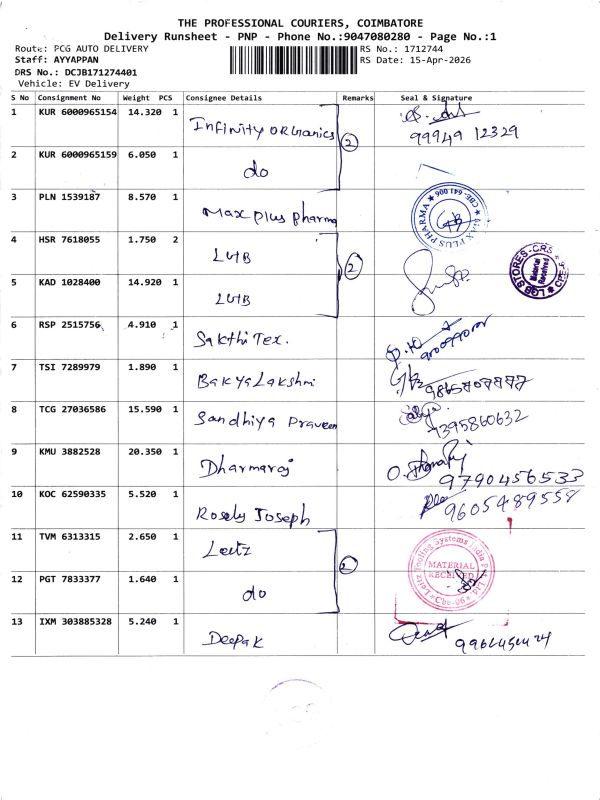 THE PROFESSIONAL COURIERS, COIMBATORE
Delivery Runsheet - PNP - Phone No.:9047080280 - Page No.:1
Route: PCG AUTO DELIVERY
RS No.: 1712744
Staff: AYYAPPAN
RS Date: 15-Apr-2026
DRS No.: DCJB171274401
Vehicle: EV Delivery
S No Consignment No Weight PCS Consignee Details Remarks Seal & Signature
1 KUR 6000965154 14.320 1 Infinity Orhanics 2
99949 12329
2 KUR 6000965159 6.050 1 do
3 PLN 1539187 8.570 1 Max plus pharma
MAX PLUS PHARMA CBE- 641 006
4 HSR 7618055 1.750 2 LGB 2
LGB STORES-CRS CBE
Material Received
5 KAD 1028400 14.920 1 LGB
6 RSP 2515756 4.910 1 Sakthi Tex.
7 TSI 7289979 1.890 1 Bakya Lakshmi
9865707777
8 TCG 27036586 15.590 1 Sandhiya Praveen
7395860632
9 KMU 3882528 20.350 1 Dharmaraj
9790456533
10 KOC 62590335 5.520 1 Rosely Joseph
9605489558
11 TVM 6313315 2.650 1 Leitz 2
Leitz Tooling Systems India Pvt. Ltd. Cbe-06
MATERIAL
RECEIVED
12 PGT 7833377 1.640 1 do
13 IXM 303885328 5.240 1 Deepak